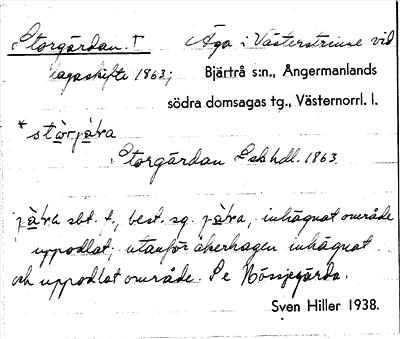 Storgärdan. † Äga i Västerstrinne vid
lagaskifte 1863; Bjärtrå s:n., Ångermanlands
södra domsagas tg., Västernorrl. l.
* stòrjàra
Storgärdan Lskhdl. 1863
jàra sbt. f., best. sg. jàra, inhägnat område
uppodlat, utanför åkerhagen inhägnat
och uppodlat område. Se Bössjegärda.
Sven Hiller 1938.